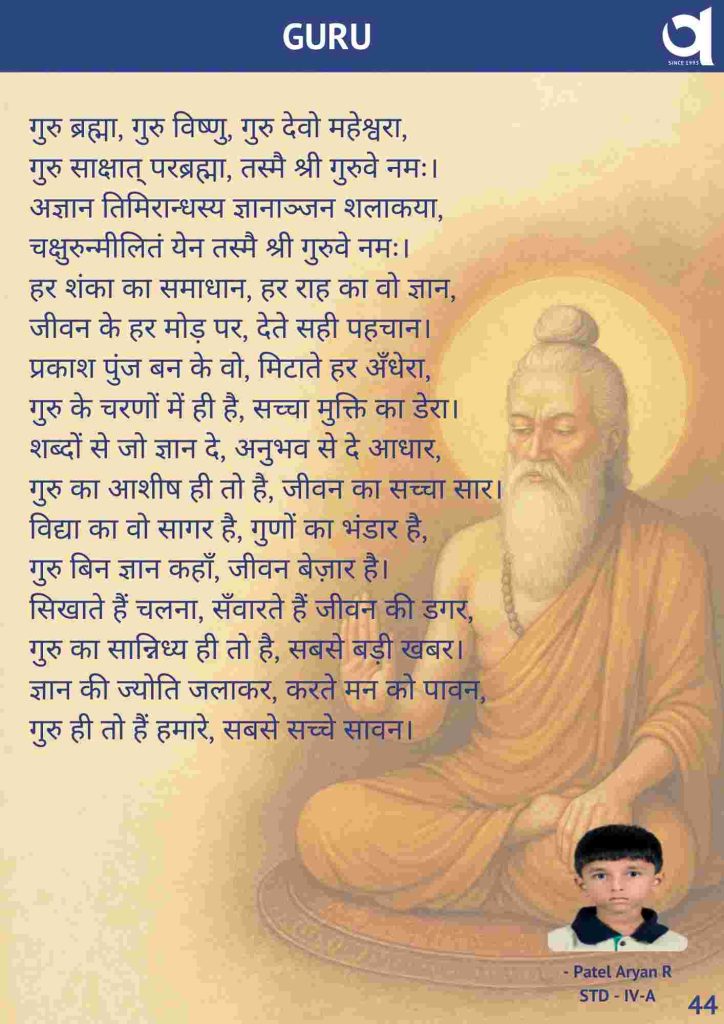 GURU
SINCE 1993
गुरु ब्रह्मा, गुरु विष्णु, गुरु देवो महेश्वरा,
गुरु साक्षात् परब्रह्मा, तस्मै श्री गुरुवे नमः।
अज्ञान तिमिरान्धस्य ज्ञानाञ्जन शलाकया,
चक्षुरुन्मीलितं येन तस्मै श्री गुरुवे नमः।
हर शंका का समाधान, हर राह का वो ज्ञान,
जीवन के हर मोड़ पर, देते सही पहचान।
प्रकाश पुंज बन के वो, मिटाते हर अँधेरा,
गुरु के चरणों में ही है, सच्चा मुक्ति का डेरा।
शब्दों से जो ज्ञान दे, अनुभव से दे आधार,
गुरु का आशीष ही तो है, जीवन का सच्चा सार।
विद्या का वो सागर है, गुणों का भंडार है,
गुरु बिन ज्ञान कहाँ, जीवन बेज़ार है।
सिखाते हैं चलना, सँवारते हैं जीवन की डगर,
गुरु का सान्निध्य ही तो है, सबसे बड़ी खबर।
ज्ञान की ज्योति जलाकर, करते मन को पावन,
गुरु ही तो हैं हमारे, सबसे सच्चे सावन।
- Patel Aryan R
STD - IV-A
44